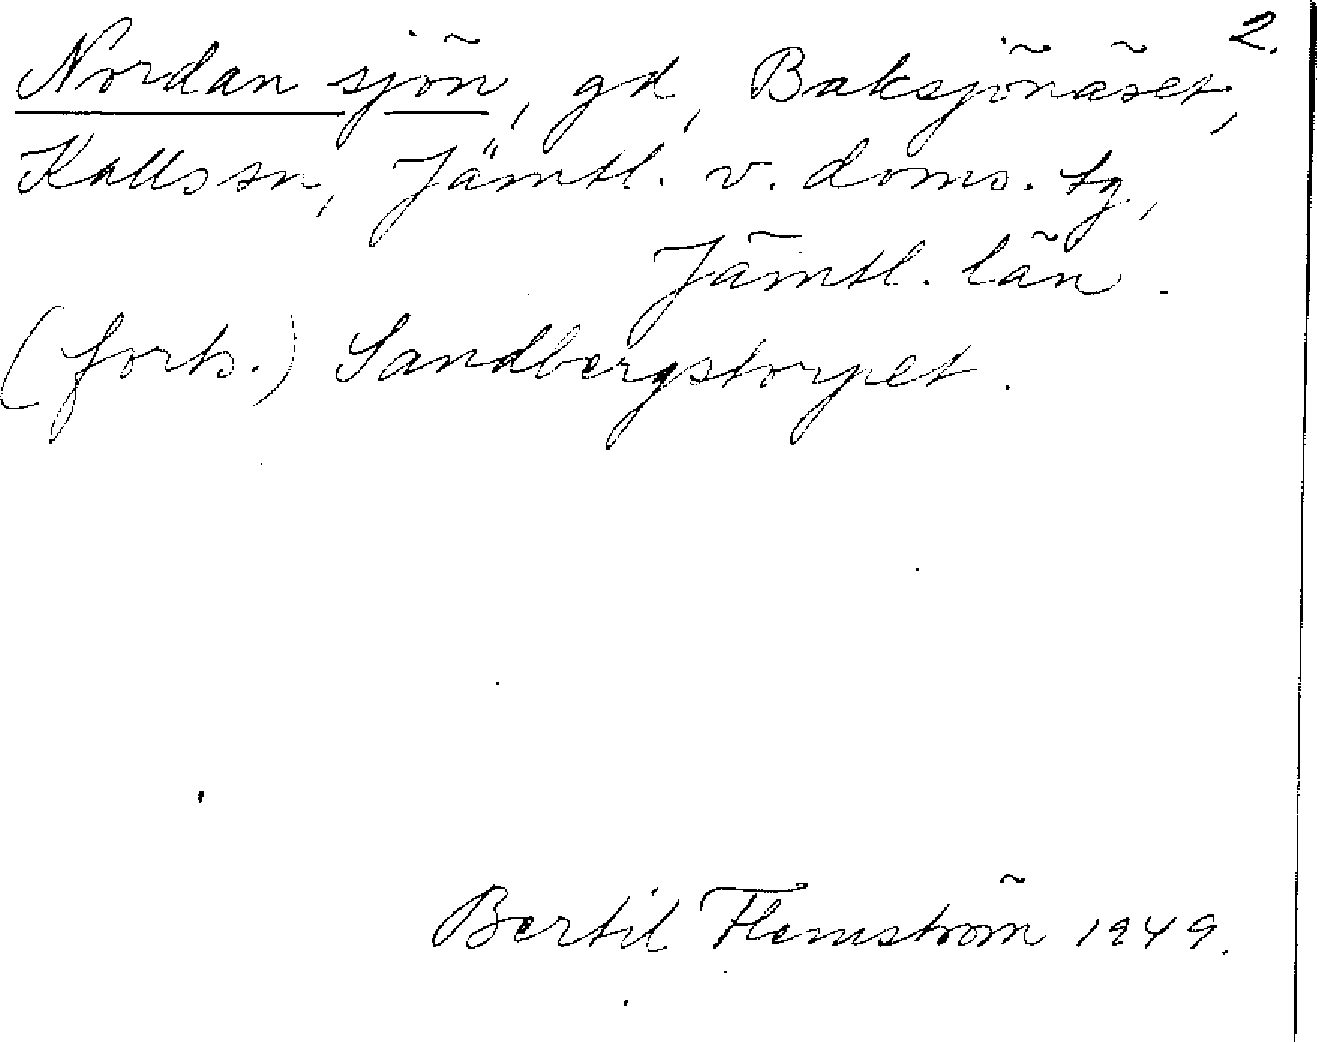 2.
Nordan sjön, gd, Baksjönäset,
Kalls sn, Jämtl. v. doms. tg.,
Jämtl. län.
(forts.) Sandbergstorpet.
Bertil Flemström 1949.